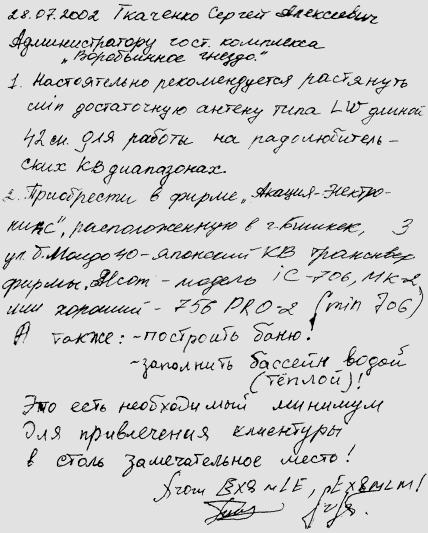 28.07.2002 Ткаченко Сергей Алексеевич
Администратору гост. комплекса
„Воробьинное гнездо."
1. Настоятельно рекомендуется растянуть
min достаточную антену типа LW длиной
42 см. для работы на радолюбитель-
ских КВ диапазонах.
2. Приобрести в фирме „Акация-Электро-
никс", расположенную в г. Бишкек,
ул. б. 40-японский КВ трансивер
фирмы - модель iC-706, МК-2
или хороший - 756 PRO-2 (min 706)
А также: - построить баню!
- заполнить бассейн водой
(тёплой)!
Это есть необходимый минимум
для привлечения клиентуры
в столь замечательное место!
from EX8MLE, EX8MLM!